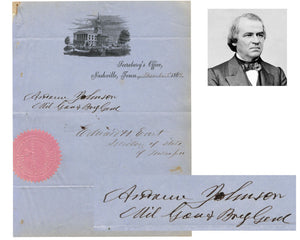 Secretary's Office,
Nashville, Tenn. 186
Andrew Johnson
Mil Gov & Brig Genl
Edward H East
Secretary of State
of Tennessee
Andrew Johnson
Mil Gov & Brig Genl